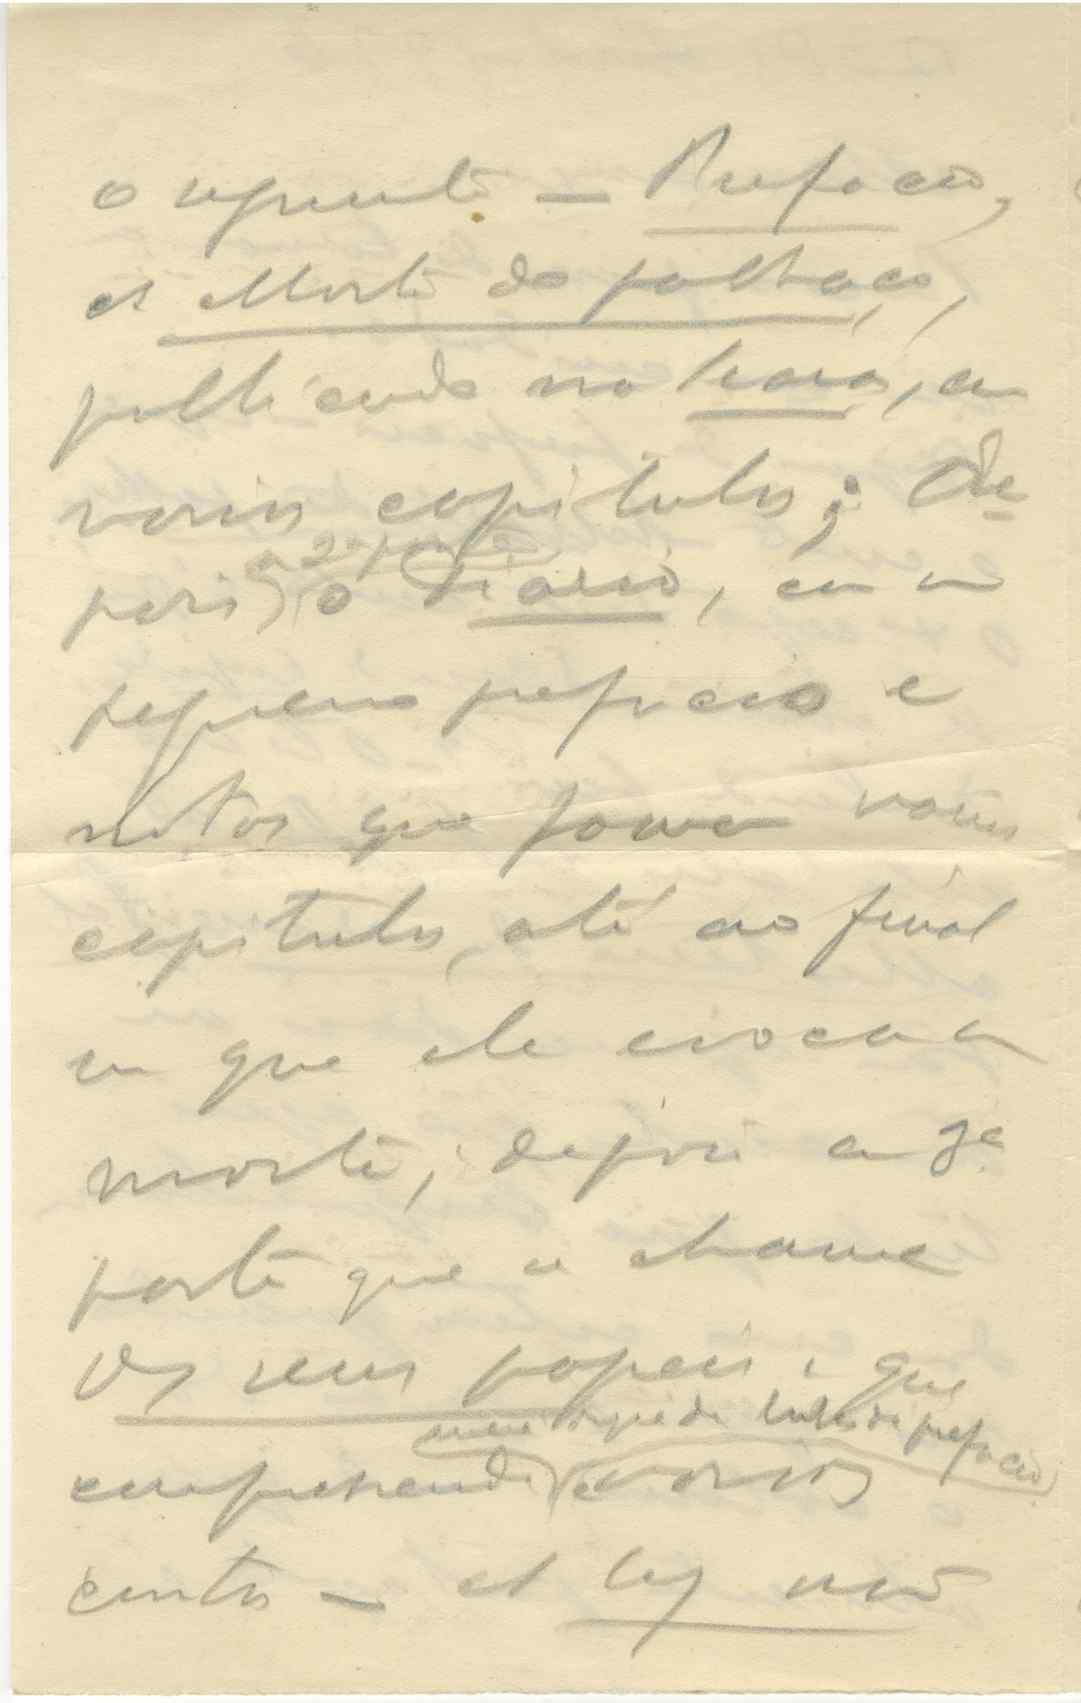 o seguinte — Prefacio,
A Morte do palhaço,
publicado no Diario, em
varios capitulos; De-
pois, a 2ª parte
o Diario, com um
pequeno prefacio e
notas que formam varios
capitulos, até ao final
em que ele evoca a
morte; depois a 3ª
parte que se chama
Os seus papeis, que
uma especie de prefacio
comprehende varios
contos — A luz não